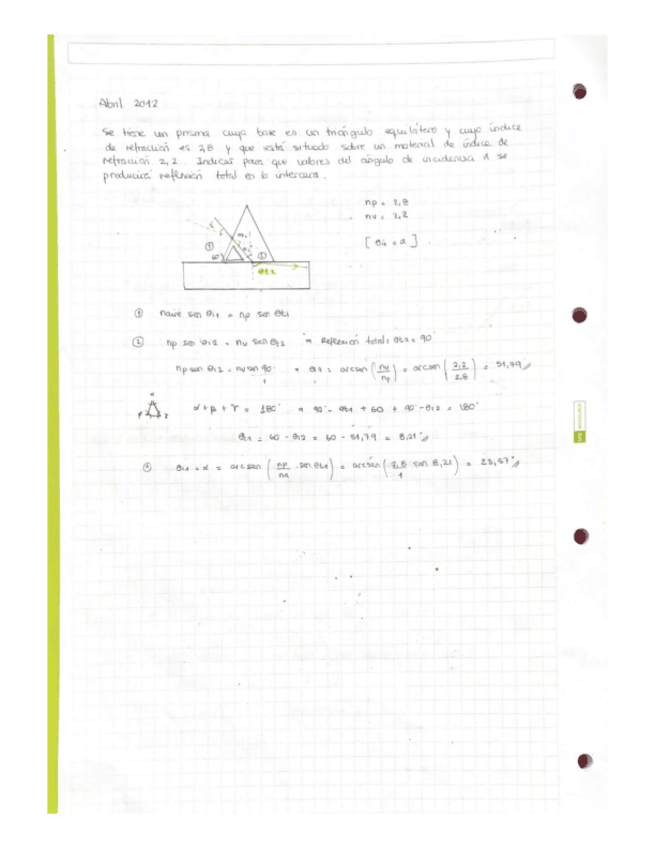 Abril 2012
Se tiene un prisma cuya base es un triángulo equilátero y cuyo índice
de refracción es 2,8 y que está situado sobre un material de índice de
refracción 2,2. Indicar para que valores del ángulo de incidencia α se
producirá reflexión total en la intercara.
np = 2,8
nv = 2,2
[ θi1 = α ]
①
60
②
θt2
① naire sen θi1 = np sen θt1
② np sen θi2 = nv sen θt2 → Reflexión total: θt2 = 90°
np sen θi2 = nv sen 90° → θi2 = arcsen (nv/np) = arcsen (2,2/2,8) = 51,79°
1
α
β γ
α + β + γ = 180° → 90° - θt1 + 60 + 90° - θi2 = 180°
θt1 = 60 - θi2 = 60 - 51,79 = 8,21°
① θi1 = α = arcsen (np/na · sen θt1) = arcsen (2,8 sen 8,21/1) = 23,57°